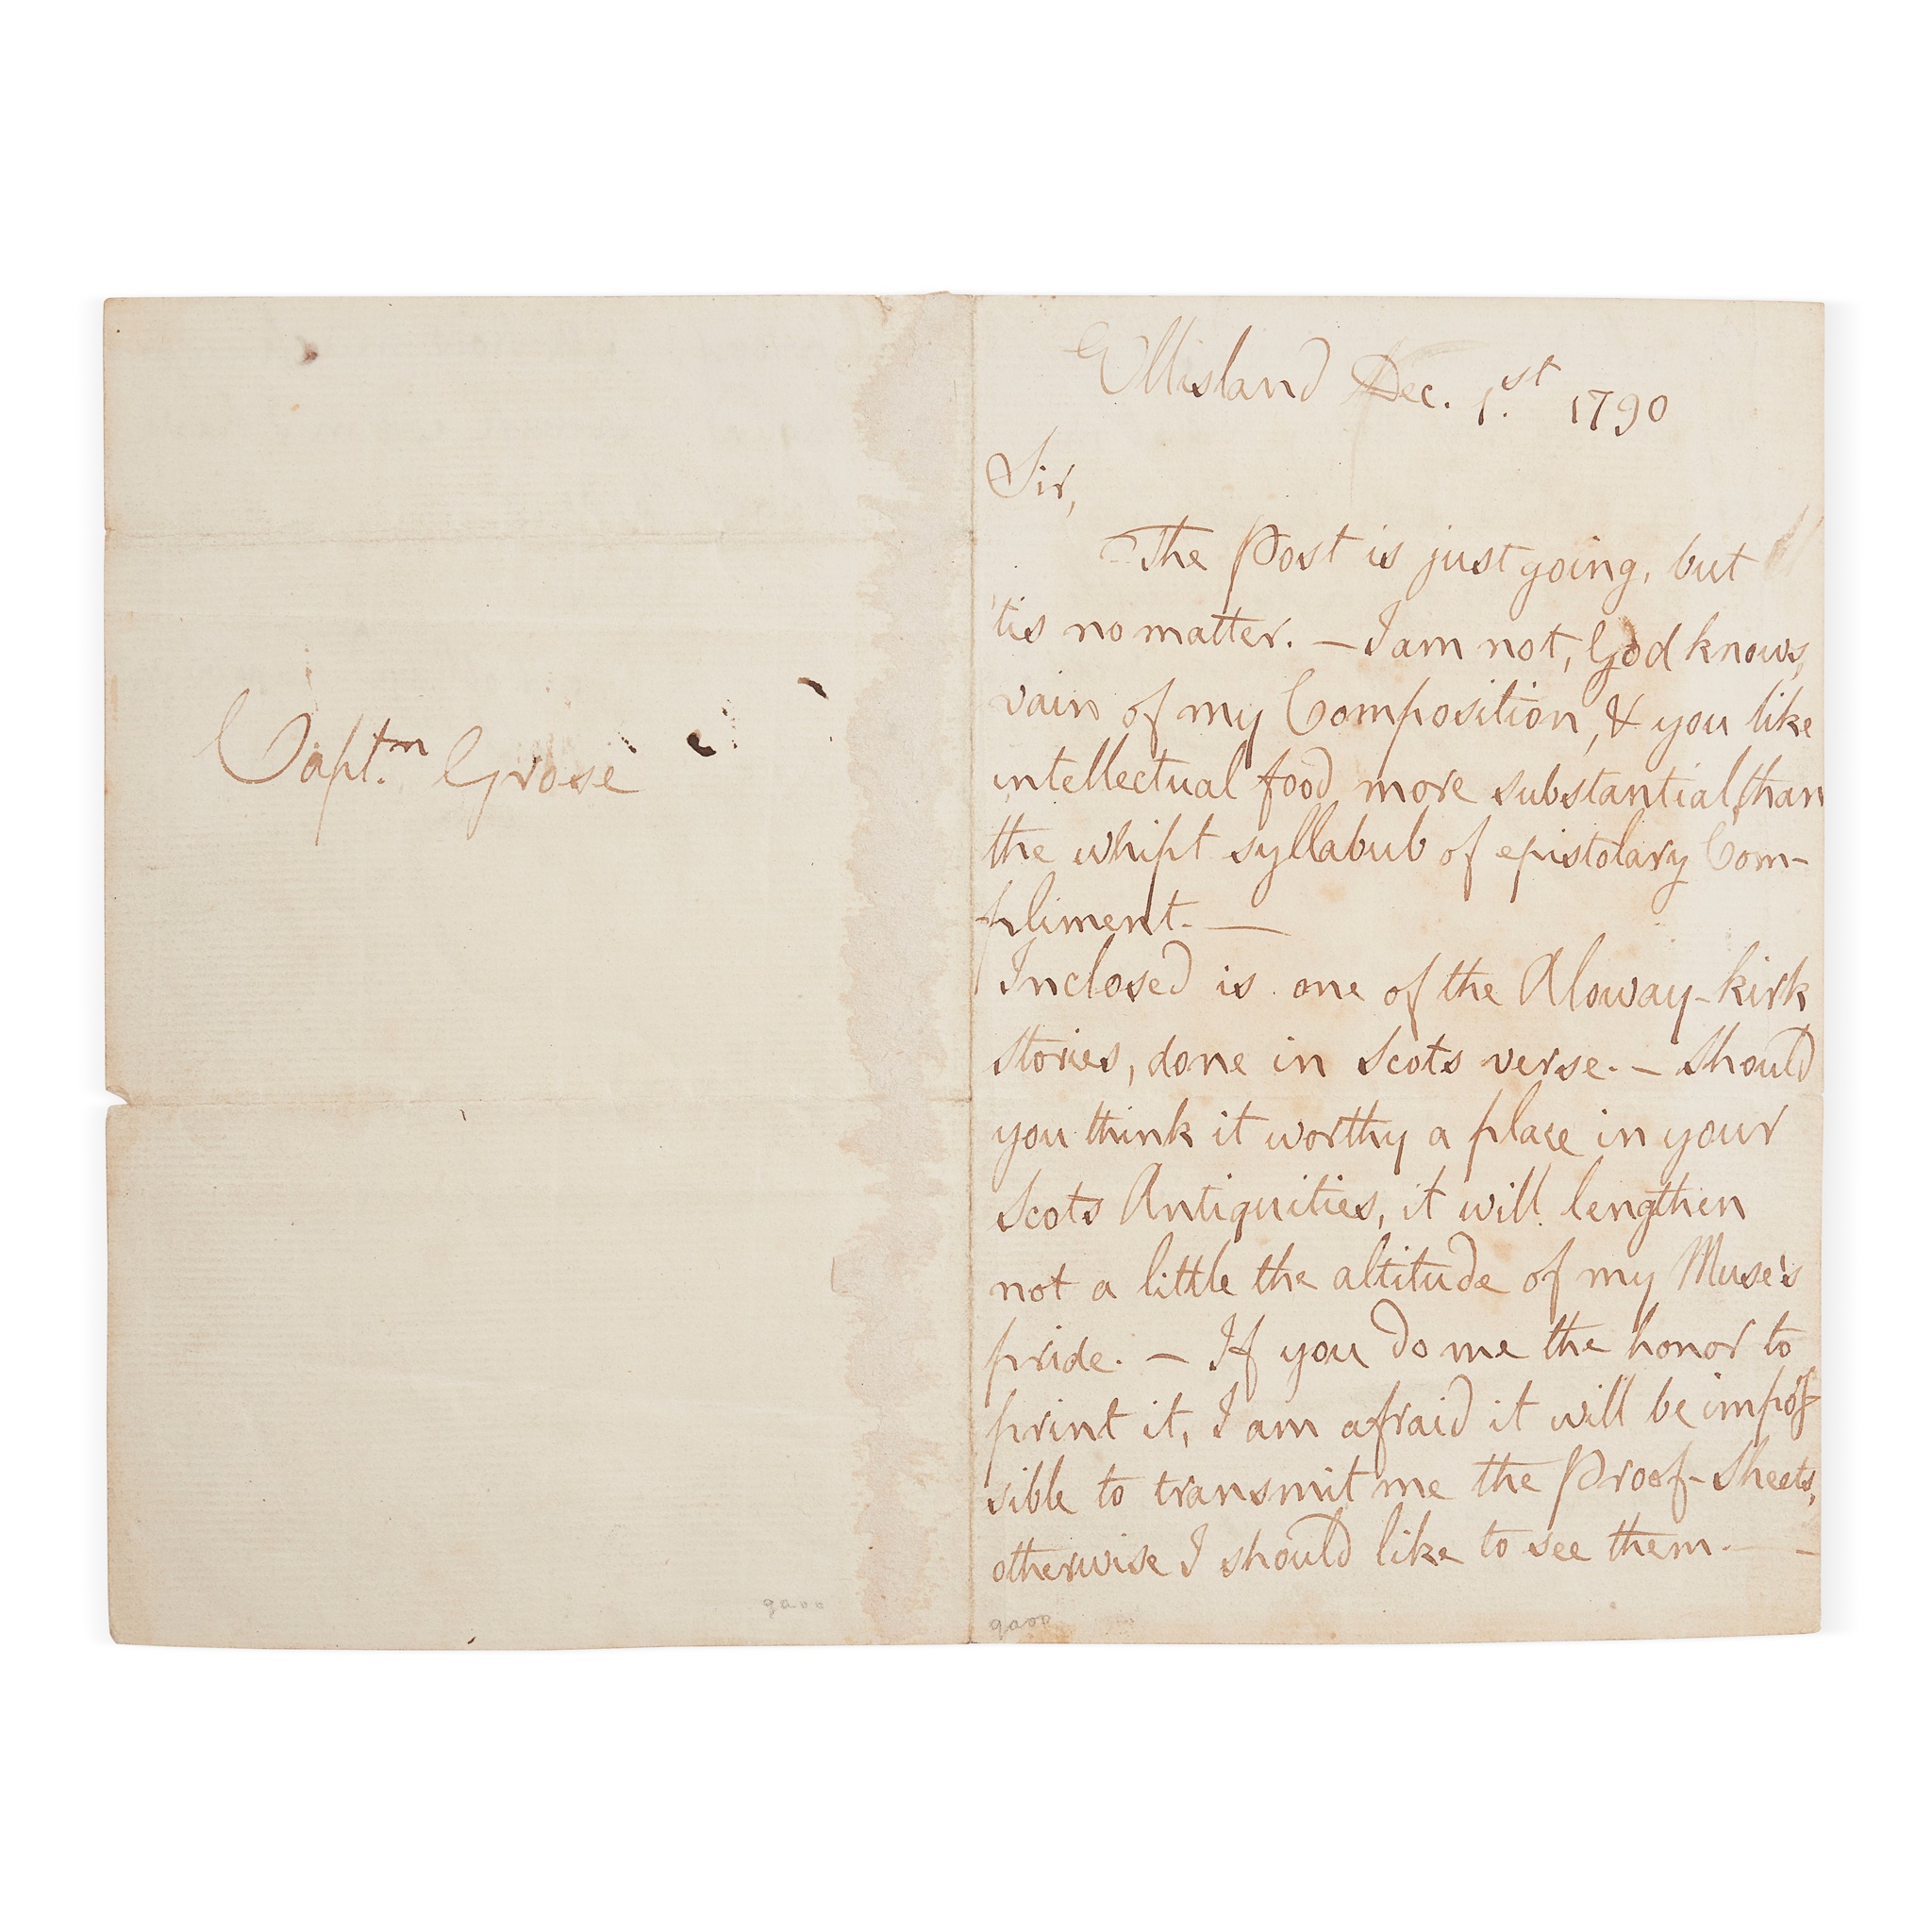 Capt.m Grose
Ellisland Dec. 1.st 1790
Sir,
The Post is just going, but
'tis no matter. — I am not, God knows,
vain of my Composition, & you like
intellectual food more substantial than
the whipt syllabub of epistolary Com-
pliment. —
Inclosed is one of the Aloway-kirk
stories, done in Scots verse. — Should
you think it worthy a place in your
Scots Antiquities, it will lengthen
not a little the altitude of my Muse's
pride. — If you do me the honor to
print it, I am afraid it will be impos-
sible to transmit me the Proof-Sheets,
otherwise I should like to see them. —